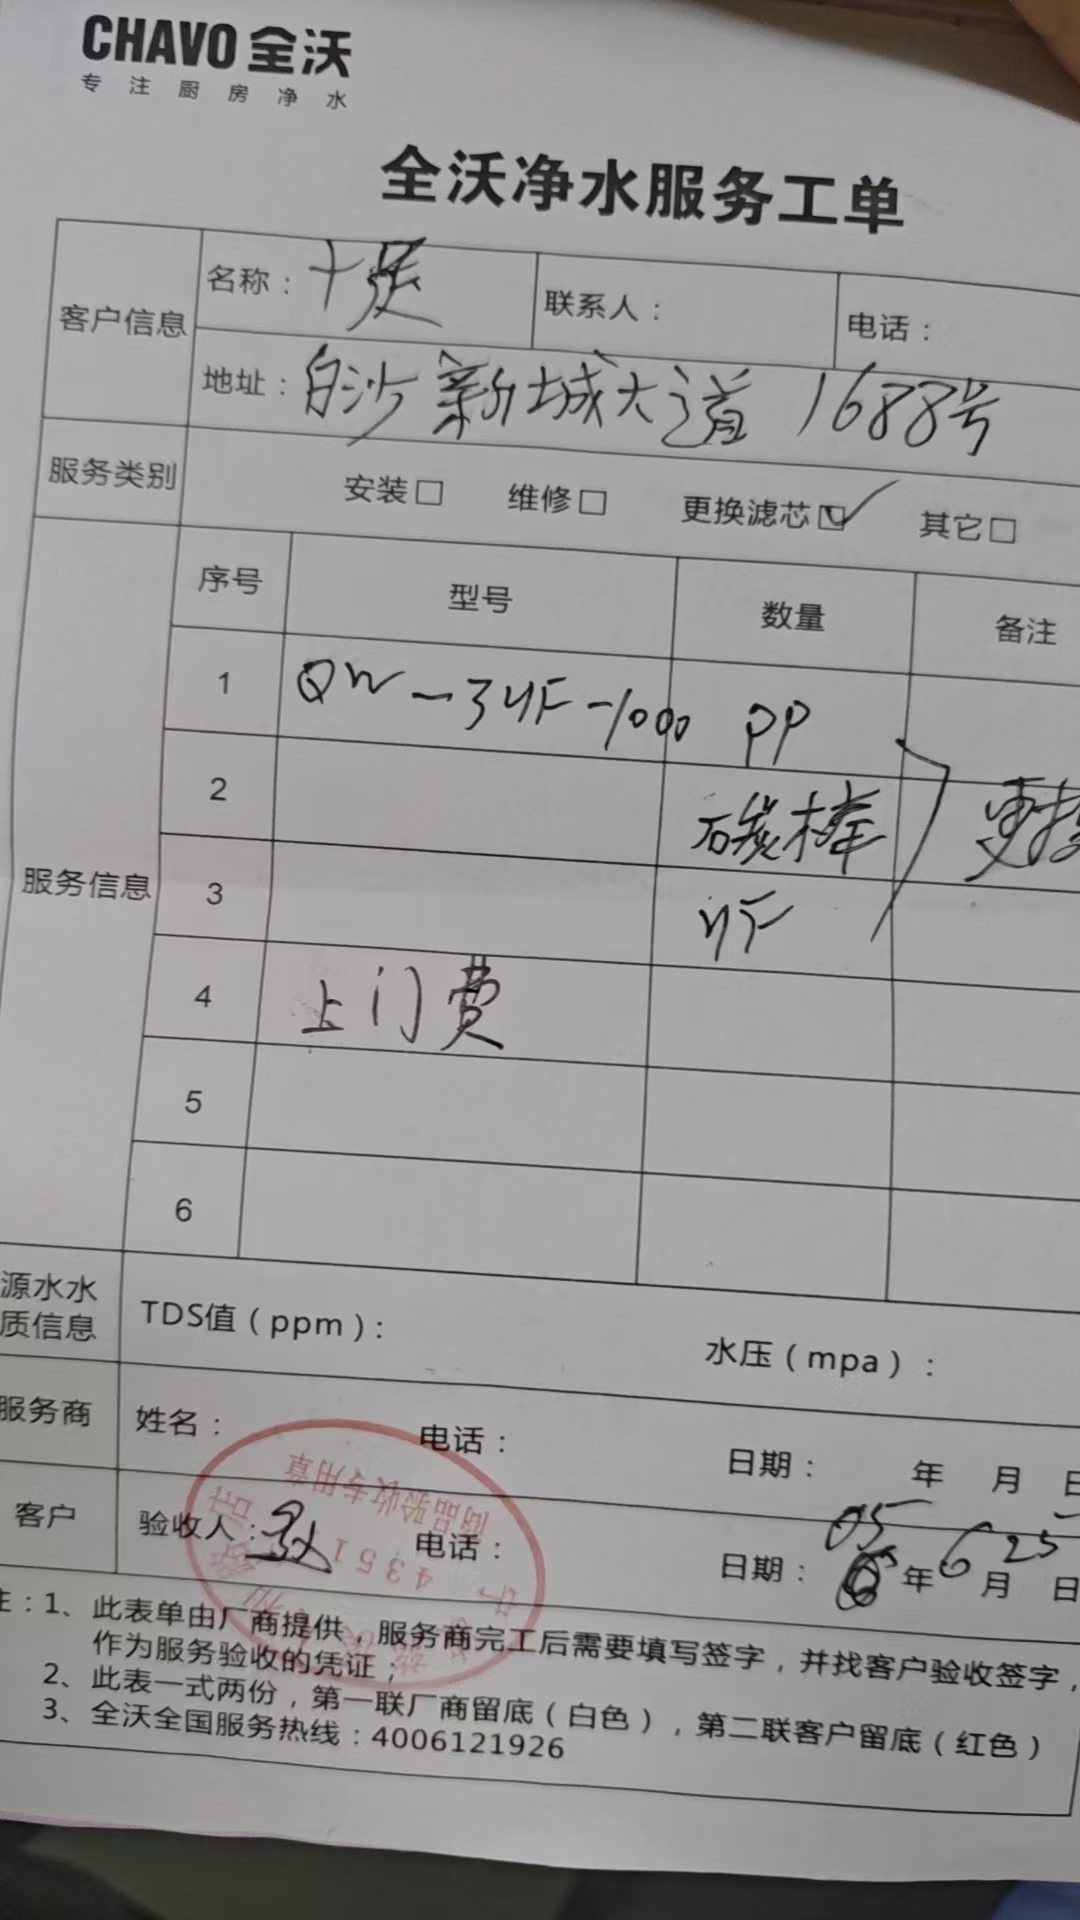 CHAVO 全沃
专注厨房净水
全沃净水服务工单
客户信息 名称：十 联系人： 电话：
地址：白沙新城大道1688号
服务类别 安装□ 维修□ 更换滤芯☑ 其它□
服务信息 序号 型号 数量 备注
1 QW-3UF-1000 PP
2 碳棒 更换
3 UF
4 上门费
5
6
源水水质信息 TDS值（ppm）： 水压（mpa）：
服务商 姓名： 电话： 日期： 年 月 日
客户 验收人： 电话： 日期： 05年6月25日
商品验收专用章
4351
注：1、此表单由厂商提供，服务商完工后需要填写签字，并找客户验收签字，
作为服务验收的凭证；
2、此表一式两份，第一联厂商留底（白色），第二联客户留底（红色）
3、全沃全国服务热线：4006121926